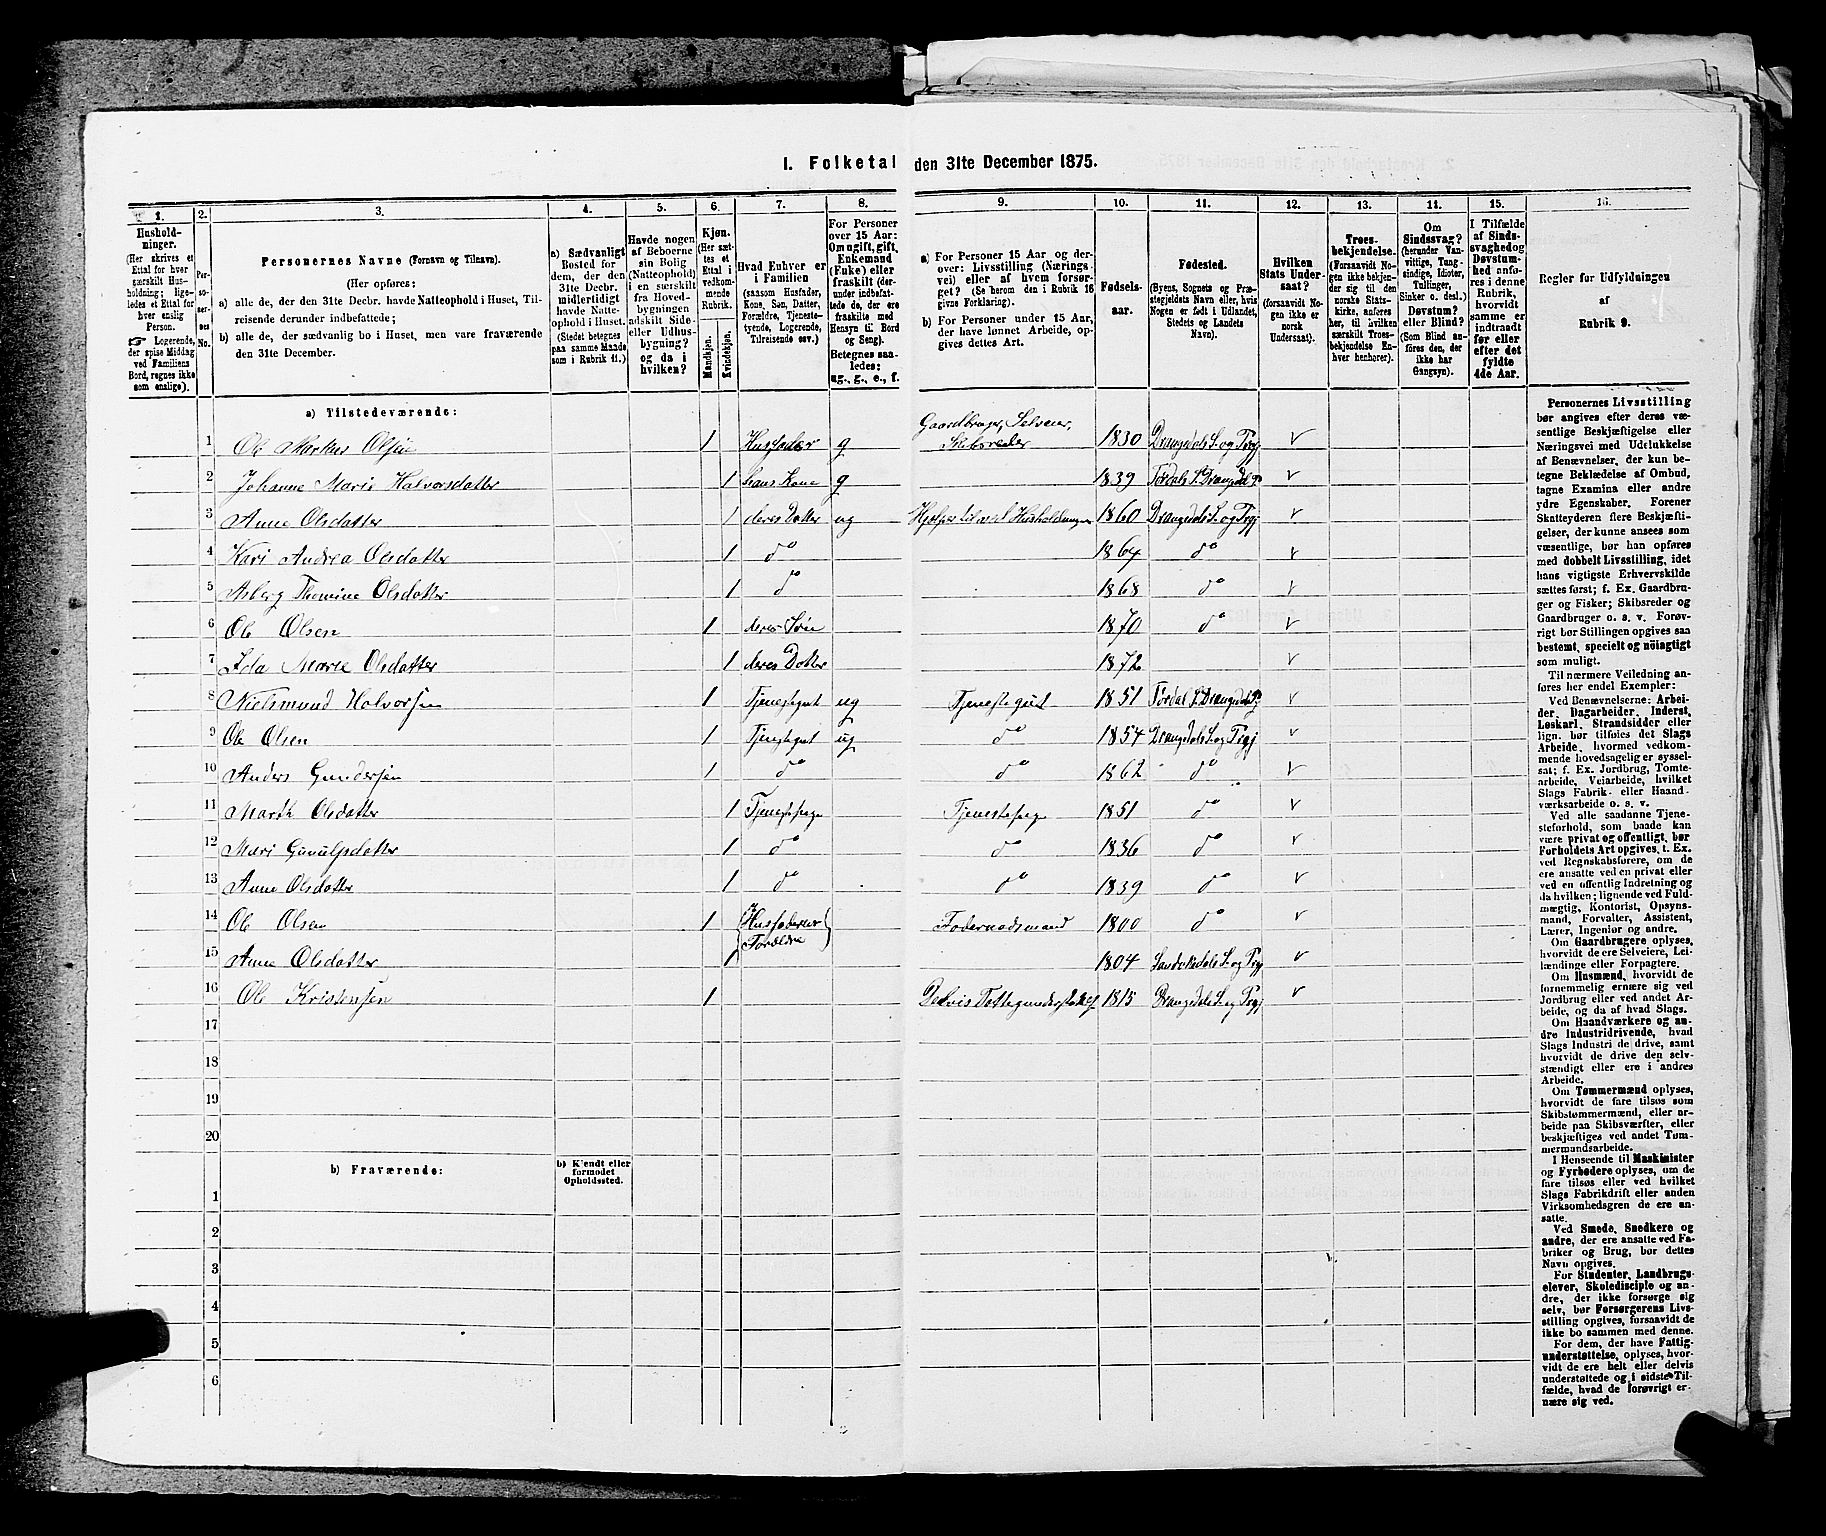 I. Folketal den 31te December 1875.
1. 2. 3. 4. 5. 6. 7. 8. 9. 10. 11. 12. 13. 14. 15. 16.
Hushold-
ninger.
(Her skrives et
Ettal for hver
særskilt Hus-
holdning; lige-
ledes et Ettal for
hver enslig
Person.
☞ Logerende,
der spise Middag
ved Familiens
Bord, regnes ikke
som enslige).
Per-
so-
ner-
nes
No.
Personernes Navne (Fornavn og Tilnavn).
(Her opføres:
a) alle de, der den 31te Decbr. havde Natteophold i Huset, Til-
reisende derunder indbefattede;
b) alle de, der sædvanlig bo i Huset, men vare fraværende
den 31te December.
a) Sædvanligt
Bosted for
dem, der den
31te Decbr.
midlertidigt
havde Natte-
ophold i Huset.
(Stedet betegnes
paa samme Maade
som i Rubrik 11.)
Havde nogen
af Beboerne
sin Bolig
(Natteophold)
i en særskilt
fra Hoved-
bygningen
adskilt Side-
eller Udhus-
bygning?
og da i
hvilken?
Kjøn.
(Her sæt-
tes et
Ettal i
vedkom-
mende
Rubrik.
Mandkjøn.
Kvindekjøn.
Hvad Enhver er
i Familien
(saasom Husfader,
Kone, Søn, Datter,
Forældre, Tjeneste-
tyende, Logerende,
Tilreisende osv.)
For Personer
over 15 Aar:
Om ugift, gift,
Enkemand
(Enke) eller
fraskilt (der-
under indbefat-
tede de, der ere
fraskilte med
Hensyn til Bord
og Seng).
Betegnes saa-
ledes:
ug., g., e., f.
a) For Personer 15 Aar og der-
over: Livsstilling (Nærings-
vei) eller af hvem forsør-
get? (Se herom den i Rubrik 16
givne Forklaring).
b) For Personer under 15 Aar,
der have lønnet Arbeide, op-
gives dettes Art.
Fødsels-
aar.
Fødested.
(Byens, Sognets og Præ-
stegjeldets Navn eller, hvis
Nogen er født i Udlandet,
Stedets og Landets
Navn).
Hvilken
Stats Under-
saat?
(forsaavidt No-
gen ikke er
norsk
Undersaat).
Troes-
bekjendelse.
(Forsaavidt No-
gen ikke bekjen-
der sig til den
norske Stats-
kirke, anføres
her, til hvilken
særskilt Troes-
bekjendelse En-
hver henhører).
Om
Sindssvag?
(herunder Van-
vittige, Tung-
sindige, Idioter,
Sinker o. desl.)
Døvstum?
eller Blind?
(Som Blind an-
føres den, der
ikke har
Gangsyn).
I Tilfælde
af Sinds-
svaghed og
Døvstum-
hed anfø-
res i denne
Rubrik,
hvorvidt
samme er
indtraadt
før eller
efter det
fyldte
4de Aar.
Regler for Udfyldningen
af
Rubrik 9.
a) Tilstedeværende:
1 Ole Markus Olsen 1 Husfader g Gaardbruger, Selveier, Skibsreder 1830 Drangedals S. og Prgj
2 Johanne Marie Halvorsdatter 1 hans Kone g 1839 Tørdals S. Drangedal P
3 Anne Olsdatter 1 deres Datter ug Hjelper til ved Husholdningen 1860 Drangedals S. og Prgj
4 Kari Andrea Olsdatter 1 do 1864 do
5 Asberg Thomine Olsdatter 1 do 1868 do
6 Ole Olsen 1 deres Søn 1870 do
7 Ida Marie Olsdatter 1 deres Datter 1872
8 Nielsmund Halvorsen 1 Tjenestegut ug Tjenestegut 1851 Tørdal S. Drangedal P
9 Ole Olsen 1 Tjenestegut ug do 1854 Drangedals S. og Prgj
10 Anders Gundersen 1 do do 1862 do
11 Marth Olsdatter 1 Tjenestepige Tjenestepige 1851 do
12 Mari Gunulfsdatter 1 do do 1836 do
13 Anne Olsdatter 1 do do 1839 do
14 Ole Olsen 1 Husfaderens Forældre Føderaadsmand 1800 do
15 Anne Olsdatter 1 1804 Sandøkedals S. og Prgj
16 Ole Kristensen 1 Delvis Fattigunderstøttet 1815 Drangedals S. og Prgj
17
18
19
20
b) Fraværende:
b) Kjendt eller
formodet
Opholdssted.
1
2
3
4
5
6
Personernes Livsstilling
bør angives efter deres væ-
sentlige Beskjæftigelse eller
Næringsvei med Udelukkelse
af Benævnelser, der kun be-
tegne Beklædelse af Ombud,
tagne Examina eller andre
ydre Egenskaber. Forener
Skatteyderen flere Beskjæfti-
gelser, der kunne ansees som
væsentlige, bør han opføres
med dobbelt Livsstilling, idet
hans vigtigste Erhvervskilde
sættes først; f. Ex. Gaardbru-
ger og Fisker; Skibsreder og
Gaardbruger o. s. v. Forøv-
rigt bør Stillingen opgives saa
bestemt, specielt og nöiagtigt
som muligt.
Til nærmere Veiledning an-
føres her endel Exempler:
Ved Benævnelserne: Arbei-
der, Dagarbeider, Inderst,
Løskarl, Strandsidder eller
lign. bør tilføies det Slags
Arbeide, hvormed vedkom-
mende hovedsagelig er syssel-
sat; f. Ex. Jordbrug, Tomte-
arbeide, Veiarbeide, hvilket
Slags Fabrik- eller Haand-
værksarbeide o. s. v.
Ved alle saadanne Tjene-
steforhold, som baade kan
være privat og offentligt, bør
Forholdets Art opgives, t. Ex.
ved Regnskabsførere, om de
ere ansatte ved en privat eller
ved en offentlig Indretning og
da hvilken; lignende ved Fuld-
mægtig, Kontorist, Opsyns-
mand, Forvalter, Assistent,
Lærer, Ingeniør og andre.
Om Gaardbrugere oplyses,
hvorvidt de ere Selveiere, Lei-
lændinge eller Forpagtere.
Om Husmænd, hvorvidt de
fornemmelig ernære sig ved
Jordbrug eller ved andet Ar-
beide, og da af hvad Slags.
Om Haandværkere og an-
dre Industridrivende, hvad
Slags Industri de drive, samt
hvorvidt de drive den selv-
stændigt eller ere i andres
Arbeide.
Om Tømmermænd oplyses,
hvorvidt de fare tilsøs som
Skibstømmermænd, eller ar-
beide paa Skibsværfter, eller
beskjæftiges ved andet Tøm-
mermandsarbeide.
I Henseende til Maskinister
og Fyrbødere oplyses, om de
fare tilsøs eller ved hvilket
Slags Fabrikdrift eller anden
Virksomhedsgren de ere an-
satte.
Ved Smede, Snedkere og
andre, der ere ansatte ved Fa-
briker og Brug, bør dettes
Navn opgives.
For Studenter, Landbrugs-
elever, Skoledisciple og an-
dre, der ikke forsørge sig
selv, bør Forsørgerens Livs-
stilling opgives, forsaavidt de
ikke bo sammen med denne.
For dem, der have Fattig-
understøttelse, oplyses, hvor-
vidt de ere helt eller delvis
understøttede og i sidste Til-
fælde, hvad de forøvrigt er-
nære sig ved.